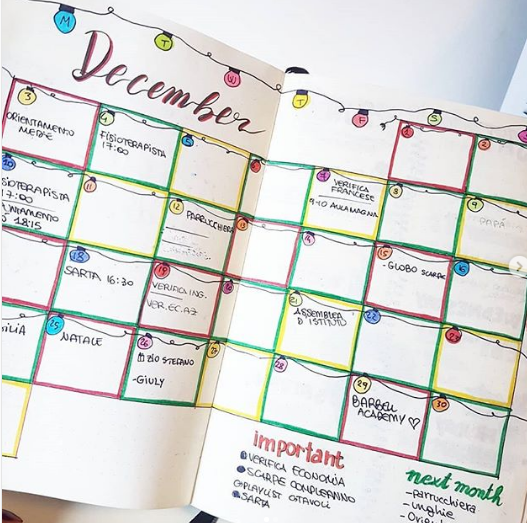 December
M T W T F S
1
2
3
ORIENTAMENTO
4
FISIOTERAPISTA
17:00
5
6
7
VERIFICA
FRANCESE
9-10 AULA MAGNA
8
9
10
SIOTERAPISTA
17:00
NTAMENTO
18:15
11
12
PARRUCCHIERA
13
14
15
- GLOBO SCARPE
16
18
SARTA 16:30
19
VERIFICA ING.
VER. EC. AZ
21
ASSEMBLEA
D'ISTITUTO
22
23
ILIA
25
NATALE
26
ZIO STEFANO
-GIULY
27
28
29
BARBER
ACADEMY ♡
30
important
VERIFICA ECONOMIA
SCARPE COMPLEANNO
PLAYLIST OTTAVOLI
SARTA
next month
- parrucchiera
- unghie